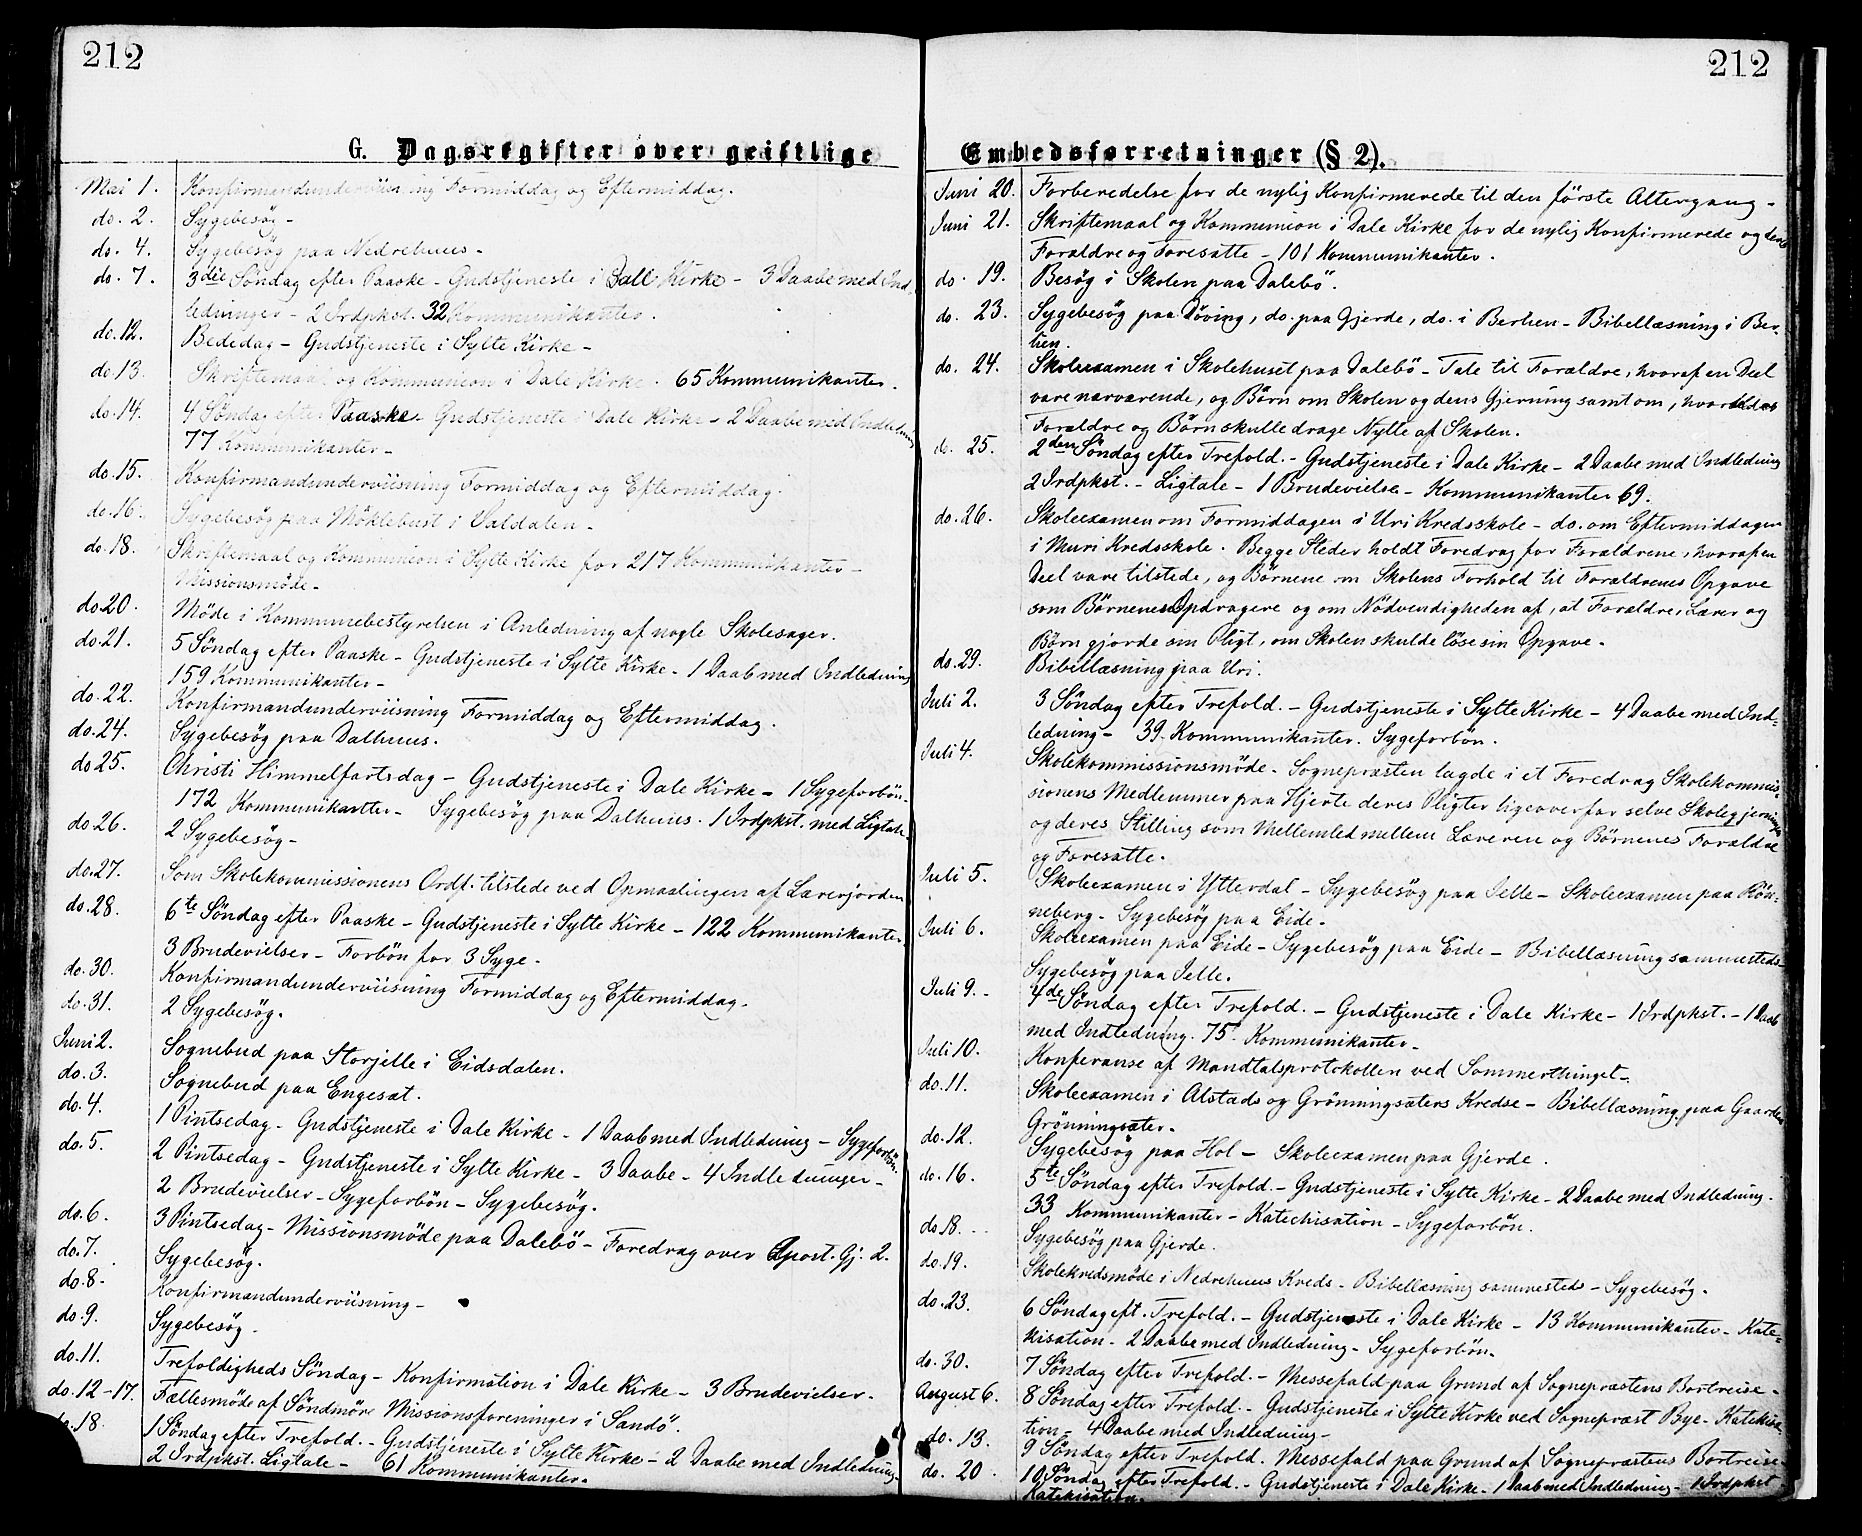 212
G. Dagsregister over geistlige
Mai 1. Konfirmandunderviisning Formiddag og Eftermiddag.
do. 2. Sygebesøg -
do. 4. Sygebesøg paa Nedrehuus -
do. 7. 3die Söndag efter Paaske - Gudstjeneste i Dale Kirke - 3 Daabe med Ind-
ledninger - 2 Irdpkst. 32 Kommunikanter.
do. 12. Bededag - Gudstjeneste i Sylte Kirke -
do. 13. Skriftemaal og Kommunion i Dale Kirke. 65 Kommunikanter.
do. 14. 4 Söndag efter Paaske - Gudstjeneste i Dale Kirke - 2 Daabe med Indledning
77 Kommunikanter -
do. 15. Konfirmandunderviisning Formiddag og Eftermiddag.
do. 16. Sygebesøg paa Möklebust i Valdalen -
do. 18. Skriftemaal og Kommunion i Sylte Kirke for 217 Kommunikanter -
Missionsmöde -
do. 20. Möde i Kommunebestyrelsen i Anledning af nogle Skolesager.
do. 21. 5 Söndag efter Paaske - Gudstjeneste i Sylte Kirke - 1 Daab med Indledning
159 Kommunikanter -
do. 22. Konfirmandunderviisning Formiddag og Eftermiddag.
do. 24. Sygebesøg paa Dalhuus.
do 25. Christi Himmelfartsdag - Gudstjeneste i Dale Kirke - 1 Sygeforbön -
172 Kommunikanter - Sygebesøg paa Dalhuus. 1 Irdpkst. med Ligtale
do 26. 2 Sygebesøg -
do. 27. Som Skolekommissionens Ordf. tilstede ved Opmaalingen af Lærerjorden
do. 28. 6te Söndag efter Paaske - Gudstjeneste i Sylte Kirke - 122 Kommunikanter.
3 Brudevielser - Forbön for 3 Syge -
do. 30. Konfirmandunderviisning Formiddag og Eftermiddag.
do. 31. 2 Sygebesøg.
Juni 2. Sognebud paa Storjelle i Eidsdalen.
do. 3. Sognebud paa Engeset.
do. 4. 1 Pintsedag - Gudstjeneste i Dale Kirke - 1 Daab med Indledning - Sygeforbön.
do. 5. 2 Pintsedag - Gudstjeneste i Sylte Kirke - 3 Daabe - 4 Indledninger -
2 Brudevielser - Sygeforbön - Sygebesøg.
do. 6. 3 Pintsedag - Missionsmöde paa Dalebö - Foredrag over Apost. Gj. 2.
do. 7. Sygebesøg.
do. 8 - Konfirmandunderviisning -
do. 9. Sygebesøg.
do. 11. Trefoldigheds Söndag - Konfirmation i Dale Kirke - 3 Brudevielser.
do. 12 - 17. Fællesmöde af Söndmöre Missionsforeninger i Sandö.
do. 18. 1 Söndag efter Trefold. - Gudstjeneste i Sylte Kirke - 2 Daabe med Indledning
2 Irdpkst. Ligtale - 61 Kommunikanter.
212
Embedsforretninger (§ 2).
Juni 20. Forberedelse for de nylig Konfirmerede til den förste Altergang -
Juni 21. Skriftemaal og Kommunion i Dale Kirke for de nylig Konfirmerede og deres
Forældre og Foresatte - 101 Kommunikanter.
do. 19. Besøg i Skolen paa Dalebö.
do. 23. Sygebesøg paa Döving, do. paa Gjerde, do. i Berlien - Bibellæsning i Ber-
lien.
do. 24. Skoleexamen i Skolehuset paa Dalebö - Tale til Forældre, hvoraf en Deel
vare nærværende, og Börn om Skolen og dens Gjerning samt om, hvorledes
Forældre og Börn skulle drage Nytte af Skolen.
do. 25. 2den Söndag efter Trefold. - Gudstjeneste i Dale Kirke - 2 Daabe med Indledning
2 Irdpkst. - Ligtale - 1 Brudevielse - Kommunikanter 69.
do. 26. Skoleexamen om Formiddagen i Uri Kredsskole - do. om Eftermiddagen
i Muri Kredsskole. Begge Steder holdt Foredrag for Forældrene, hvoraf en
Deel vare tilstede, og Börnene om Skolens Forhold til Forældrenes Opgave
som Börnenes Opdragere og om Nödvendigheden af, at Forældre, Lærer og
Börn gjorde sin Pligt, om Skolen skulde löse sin Opgave.
do. 29. Bibellæsning paa Uri.
Juli 2. 3 Söndag efter Trefold. - Gudstjeneste i Sylte Kirke - 4 Daabe med Ind-
ledning - 39 Kommunikanter. Sygeforbön.
Juli 4. Skolekommissionsmöde. Sognepræsten lagde i et Foredrag Skolekommis-
sionens Medlemmer paa Hjerte deres Pligter ligeoverfor selve Skolegjerningen
og deres Stilling som Mellemled mellem Læreren og Börnenes Forældre
og Foresatte.
Juli 5. Skoleexamen i Ytterdal - Sygebesøg paa Jelle - Skoleexamen paa Rön-
neberg - Sygebesøg paa Eide.
Juli 6. Skoleexamen paa Eide - Sygebesøg paa Eide - Bibellæsning sammesteds.
Sygebesøg paa Jelle.
Juli 9. - 4de Söndag efter Trefold. - Gudstjeneste i Dale Kirke - 1 Irdpkst. - 1 Daab
med Indledning. 75 Kommunikanter -
Juli 10. Konferanse af Mandtalsprotokollen ved Sommerthinget -
do. 11. Skoleexamen i Alstads og Grönningsæters Kredse - Bibellæsning paa Gaarden
Grönningsæter.
do. 12. Sygebesøg paa Hol - Skoleexamen paa Gjerde.
do. 16. 5te Söndag efter Trefold. - Gudstjeneste i Sylte Kirke - 2 Daabe med Indledning.
33 Kommunikanter - Katechisation - Sygeforbön.
do 18. Sygebesøg paa Gjerde.
do. 19. Skolekredsmöde i Nedrehuus Kreds - Bibellæsning sammesteds - Sygebesøg.
do. 23. 6 Söndag eft. Trefold. - Gudstjeneste i Dale Kirke - 13 Kommunikanter - Kate-
kisation - 2 Daabe med Indledning - Sygeforbön.
do. 30. 7 Söndag efter Trefold. - Messefald paa Grund af Sognepræstens Bortreise -
August 6. 8 Söndag efter Trefold. - Gudstjeneste i Sylte Kirke ved Sognepræst Bye - Katekisa-
tion - 4 Daabe med Indledning -
do. 13. 9 Söndag efter Trefold. Messefald paa Grund af Sognepræstens Bortreise.
do. 20. 10 Söndag efter Trefold. - Gudstjeneste i Dale Kirke - 1 Daab med Indledning - 1 Irdpkst
Katekisation.